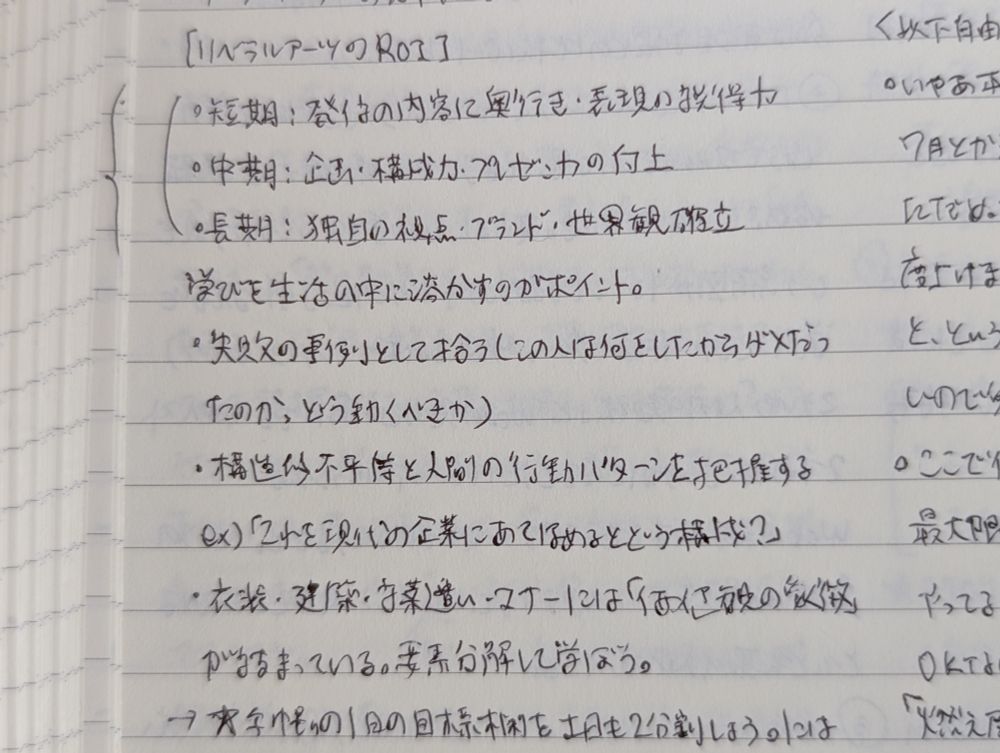 [リベラルアーツのROI]
・短期：発信の内容に奥行き・表現の説得力
・中期：企画・構成力・プレゼン力の向上
・長期：独自の視点・ブランド・世界観確立
学びを生活の中に溶かすのがポイント。
・失敗の事例として拾う（この人は何をしたからダメだっ
たのか、どう動くべきか）
・構造的不平等と人間の行動パターンを把握する
ex）「これを現代の企業にあてはめるとどういう構成？」
・衣装・建築・言葉遣い・マナーには「価値観の象徴」
が詰まっている。要素分解して学ぼう。
→ の1日の目標 を 土日も2分割しよう。には
＜以下自由
○いやあ
7月とか
にてでの。
度上げま
と、という
いので
○ここで
最大限
やってる
OKな
「燃え